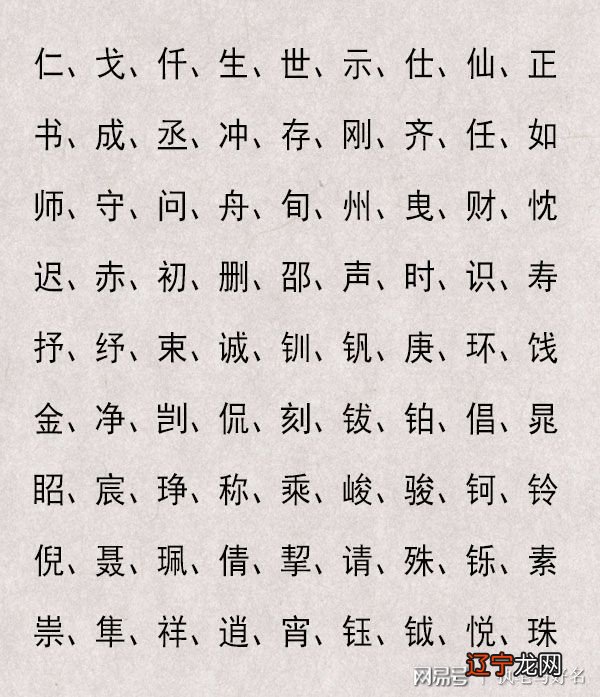 仁、戈、仟、生、世、示、仕、仙、正
书、成、丞、冲、存、刚、齐、任、如
师、守、问、舟、旬、州、曳、财、忱
迟、赤、初、删、邵、声、时、识、寿
抒、纾、束、诚、钏、钒、庚、环、饯
金、净、剀、侃、刻、钹、铂、倡、晁
眧、宸、琤、称、乘、峻、骏、钶、铃
倪、聂、珮、倩、挈、请、殊、铄、素
祟、隼、祥、逍、宵、钰、钺、悦、珠
网易号
辽宁龙网